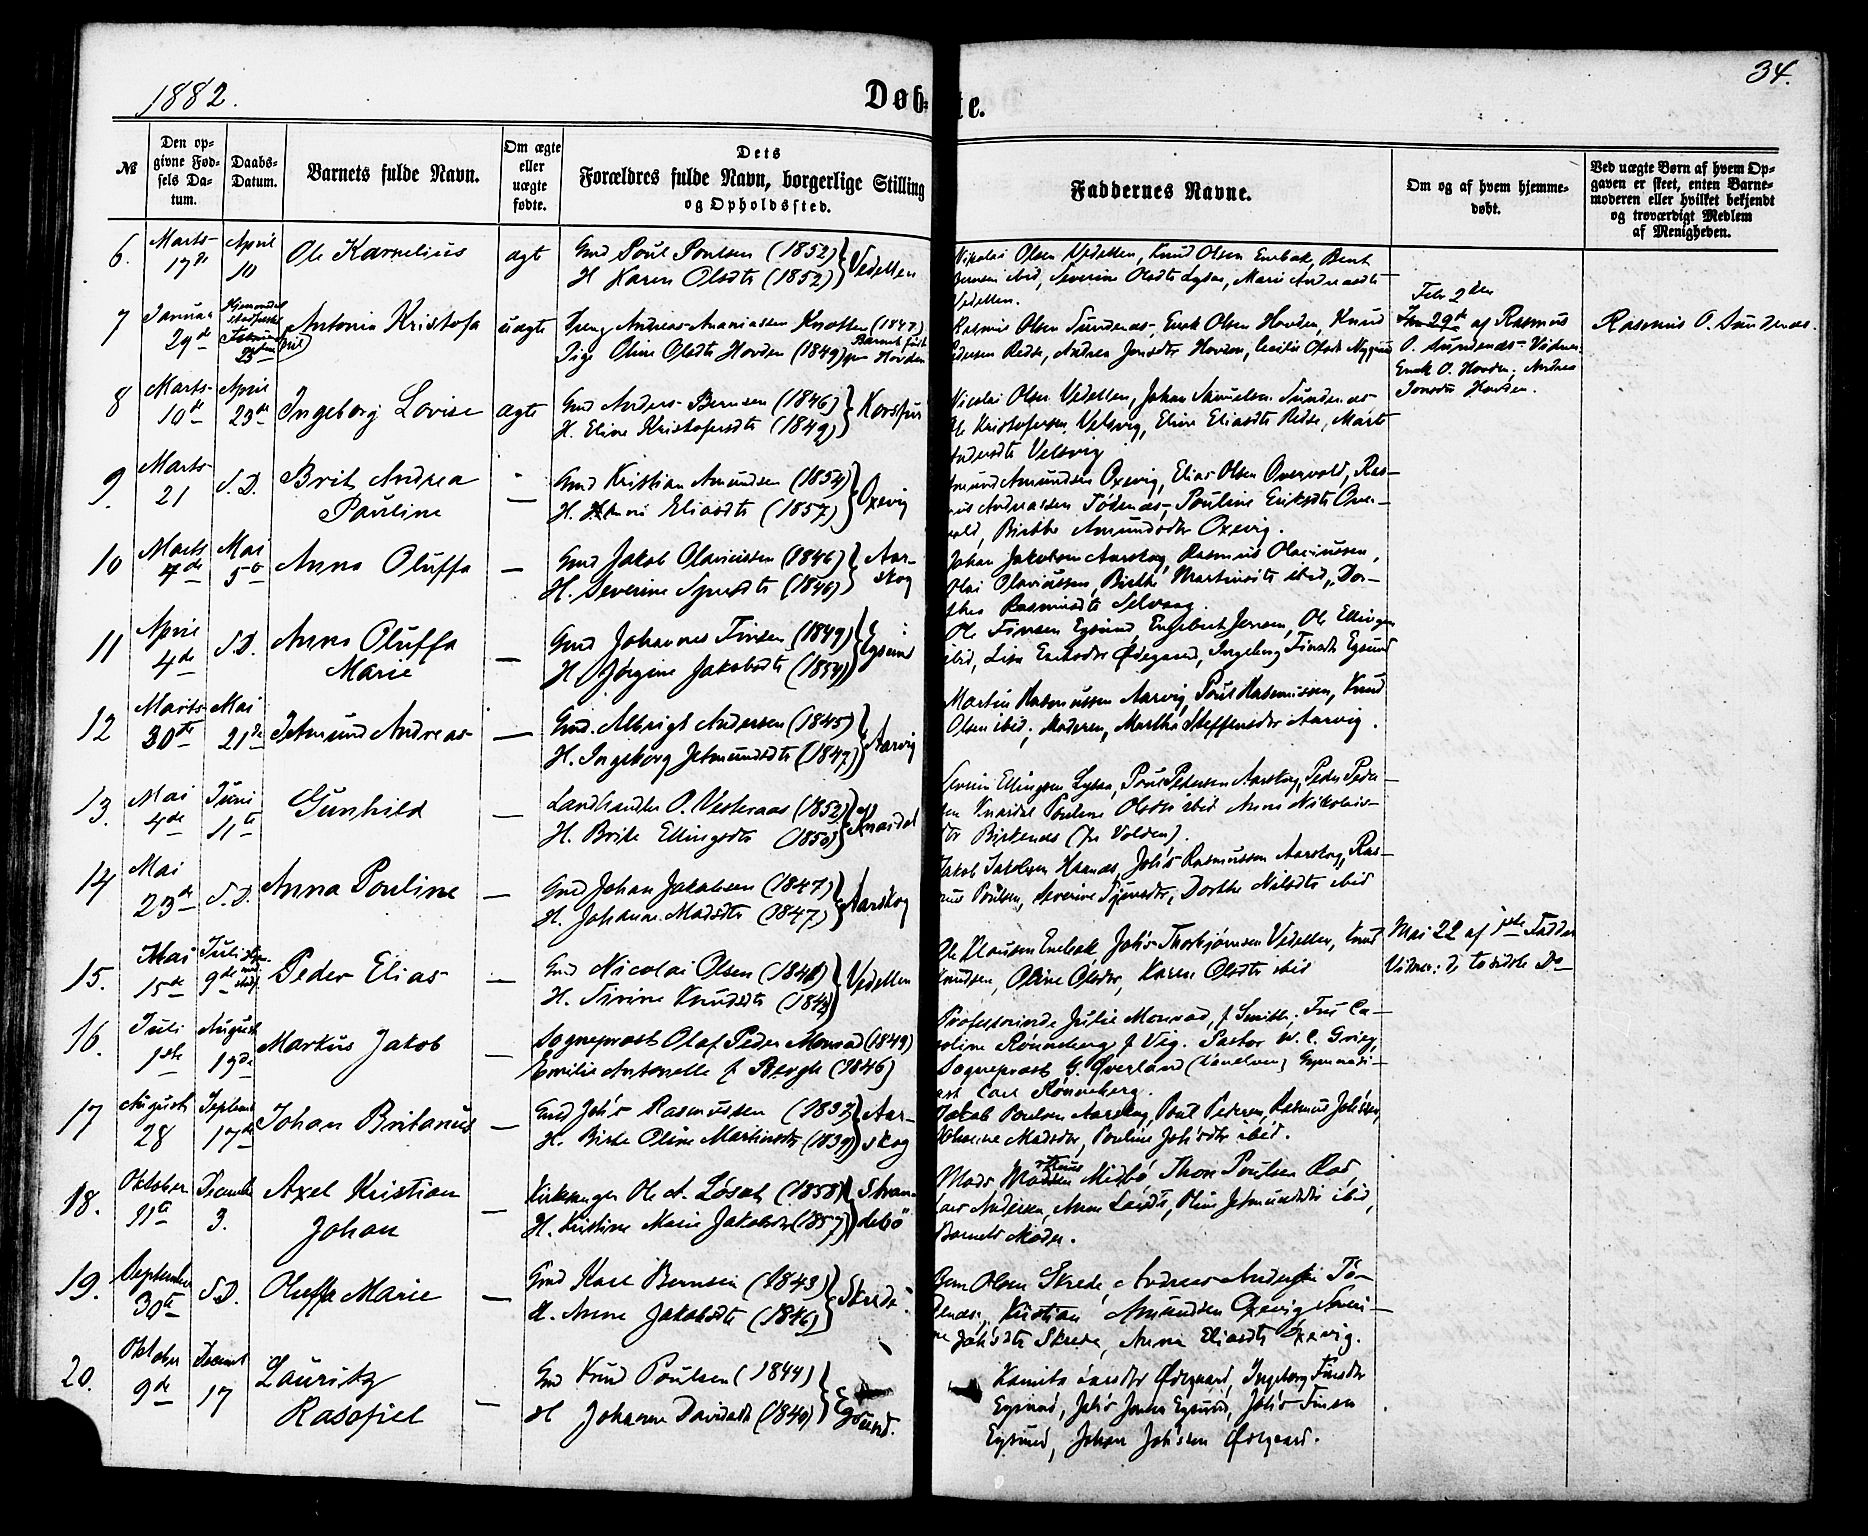 1882.
Døb-
te.
34.
№
Den op-
givne Fød-
sels Da-
tum.
Daabs-
Datum.
Barnets fulde Navn.
Om ægte
eller
uægte
fødte.
Dets
Forældres fulde Navn, borgerlige Stilling
og Opholdssted.
Faddernes Navne.
Om og af hvem hjemme-
døbt.
Ved uægte Børn af hvem Op-
gaven er skeet, enten Barne-
moderen eller hvilket bekjendt
og troværdigt Medlem
af Menigheden.
6. Marts 17de April 10 Ole Kornelius ægt
Gmd Poul Poulsen (1852)
H Karen Olsdt (1852) Vedelden
Nikolai Olsen Vedelden, Knud Olsen Enebak, Bernt
Bernsen ibid, Severine Olsdt Lykse, Marie Andreasdt
Vedelden.
7 Januar 29de Antonia Kristofa uægte
Ung. Andreas Ananiassen Knotten (1847)
Pige Oline Olsdt Hovden (1849) Hovden
Rasmus Olsen Sundenæs, Enok Olsen Hovden, Knud
Pedersen Redse, Andrea Jonsdtr Hovden, Cecilie Olsdt Mygrund
Febr 2den
Jan 29de af Rasmus
O. Sundenæs - Vidner
Enok O. Hovden, Andrea
Jonsdtr Hovden.
Rasmus O. Sundenæs.
8 Marts 10de April 23de Ingeborg Lovise ægte
Gmd Anders Bernsen (1846)
H. Eline Kristofersdt (1849) Korsfur
Nicolai Olsen Vedelden, Johan Samuelsen Sundenæs
Ole Kristofersen Velsvig, Eline Eliasdt Redse, Marte
Andersdt Velsvig
9. Marts 21 S. D. Brit Andrea
Pauline —
Gmd Kristian Amundsen (1854)
H. Anne Eliasdt (1857) Oxevig
Amund Amundsen Oxevig, Elias Olsen Overvold, Ras-
mus Andreassen Tødenæs, Pouline Eriksdt Over-
vold, Birthe Amundsdtr Oxevig.
10 Marts 4de Mai 5 Anna Oluffa —
Gmd Jakob Olaviussen (1846)
H. Severine Sjursdt (1846) Aar-
skog
Johan Jakobsen Aarskog, Rasmus Olaviussen,
Olai Olaviussen, Birthe Martinsdt ibid, Dor-
thea Rasmusdt Selvaag.
11 April 4de S. D. Anna Oluffa
Marie —
Gmd Johannes Finsen (1849)
H Jørgine Jakobsdt (1854) Egsund
Ole Finsen Egsund, Engebert Jensen, Ole Ellingsen
ibid, Lisa Eriksdtr Ødegaard, Ingeborg Finsdt Egsund
12 Marts 30te Mai 21de Jetmund Andreas —
Gmd. Albrigt Andersen (1845)
H. Ingeborg Jetmundsdt (1847) Aarvig
Martin Rasmussen Aarvig, Poul Rasmussen, Knud
Olsen ibid, Moderen, Martha Steffensdtr Aarvig.
13. Mai 4de Juni 11te Gunhild —
Landhandler O. Vesteraas (1852)
H. Brite Ellingsdt (1850) Knardal
Severin Ellingsen Lykse, Poul Pedersen Aarskog, Peder Peder-
sen Knardal Pouline Olsdtr ibid Anne Nikolais-
dtr Birkenes (fr Volden).
14 Mai 23de S. D. Anna Pouline —
Gmd Johan Jakobsen (1847)
H. Johanne Madsdtr (1847) Aarskog
Jakob Jakobsen Haanæs, Joh's Rasmussen Aarskog, Ras-
mus Poulsen, Severine Sjursdtr, Dorthe Nilsdt ibid
15. Mai 15de Juli 9de Peder Elias —
Gmd Nicolai Olsen (1848)
H. Sirine Knudsdt (1842) Vedelden
Ole Klausen Enebak, Joh's Thorbjørnsen Vedelden, Knud
Knudsen, Oline Olsdtr, Karen Olsdtr ibid
Mai 22 af 1ste Fadder
Vidner: de to sidste Do
16. Juli 1ste August 19de Markus Jakob —
Sogneprest Olaf Peder Monrad (1849)
Emilie Antonette f Bergh (1846)
Professorinde Julie Monrad, f Smith. Fru Ca-
roline Rønneberg f Vig. Pastor W. C. Grieg,
Sogneprest G. Øverland (Vanelven) Gymnasi-
ast Carl Rønneberg.
17 August 28 Septemb 17de Johan Britanus —
Gmd Joh's Rasmussen (1833)
H. Birte Oline Martinsdtr (1839) Aar-
skog
Jakob Poulsen Aarskog, Poul Pedersen, Rasmus Joh'ssen,
Johanne Madsdtr, Pouline Joh'sdtr ibid.
18. Oktober 11te Decembr 3. Axel Kristian
Johan —
Kirkesanger Ole A. Løset (1858)
H. Kristine Marie Jakobsdtr (1857) Stran-
debø
Mads Madsen Midbø Thore Poulsen Rød,
Lars Andersen, Anne Larsdt, Oline Jetmundsdt ibid,
Barnets Moder.
19. September 30te S. D. Oluffa Marie —
Gmd Karl Bernsen (1843)
H. Anne Jakobsdt (1846) Skrede
Bern Olsen Skrede, Andreas Andersen Tø-
denæs, Kristian Amundsen Oxevig Severi-
ne Joh'sdtr Skrede, Anne Eliasdt Oxevig.
20. Oktober 9de Decemb 17 Lauritz
Rasofiel —
Gmd Knud Poulsen (1844)
H Johanne Davidsdt (1840) Egsund.
Kamilla Larsdtr Ødegaard, Ingeborg Finsdtr
Egsund, Joh's Jensen Egsund, Joh's Finsen
Egsund, Johan Joh'ssen Ødegaard.